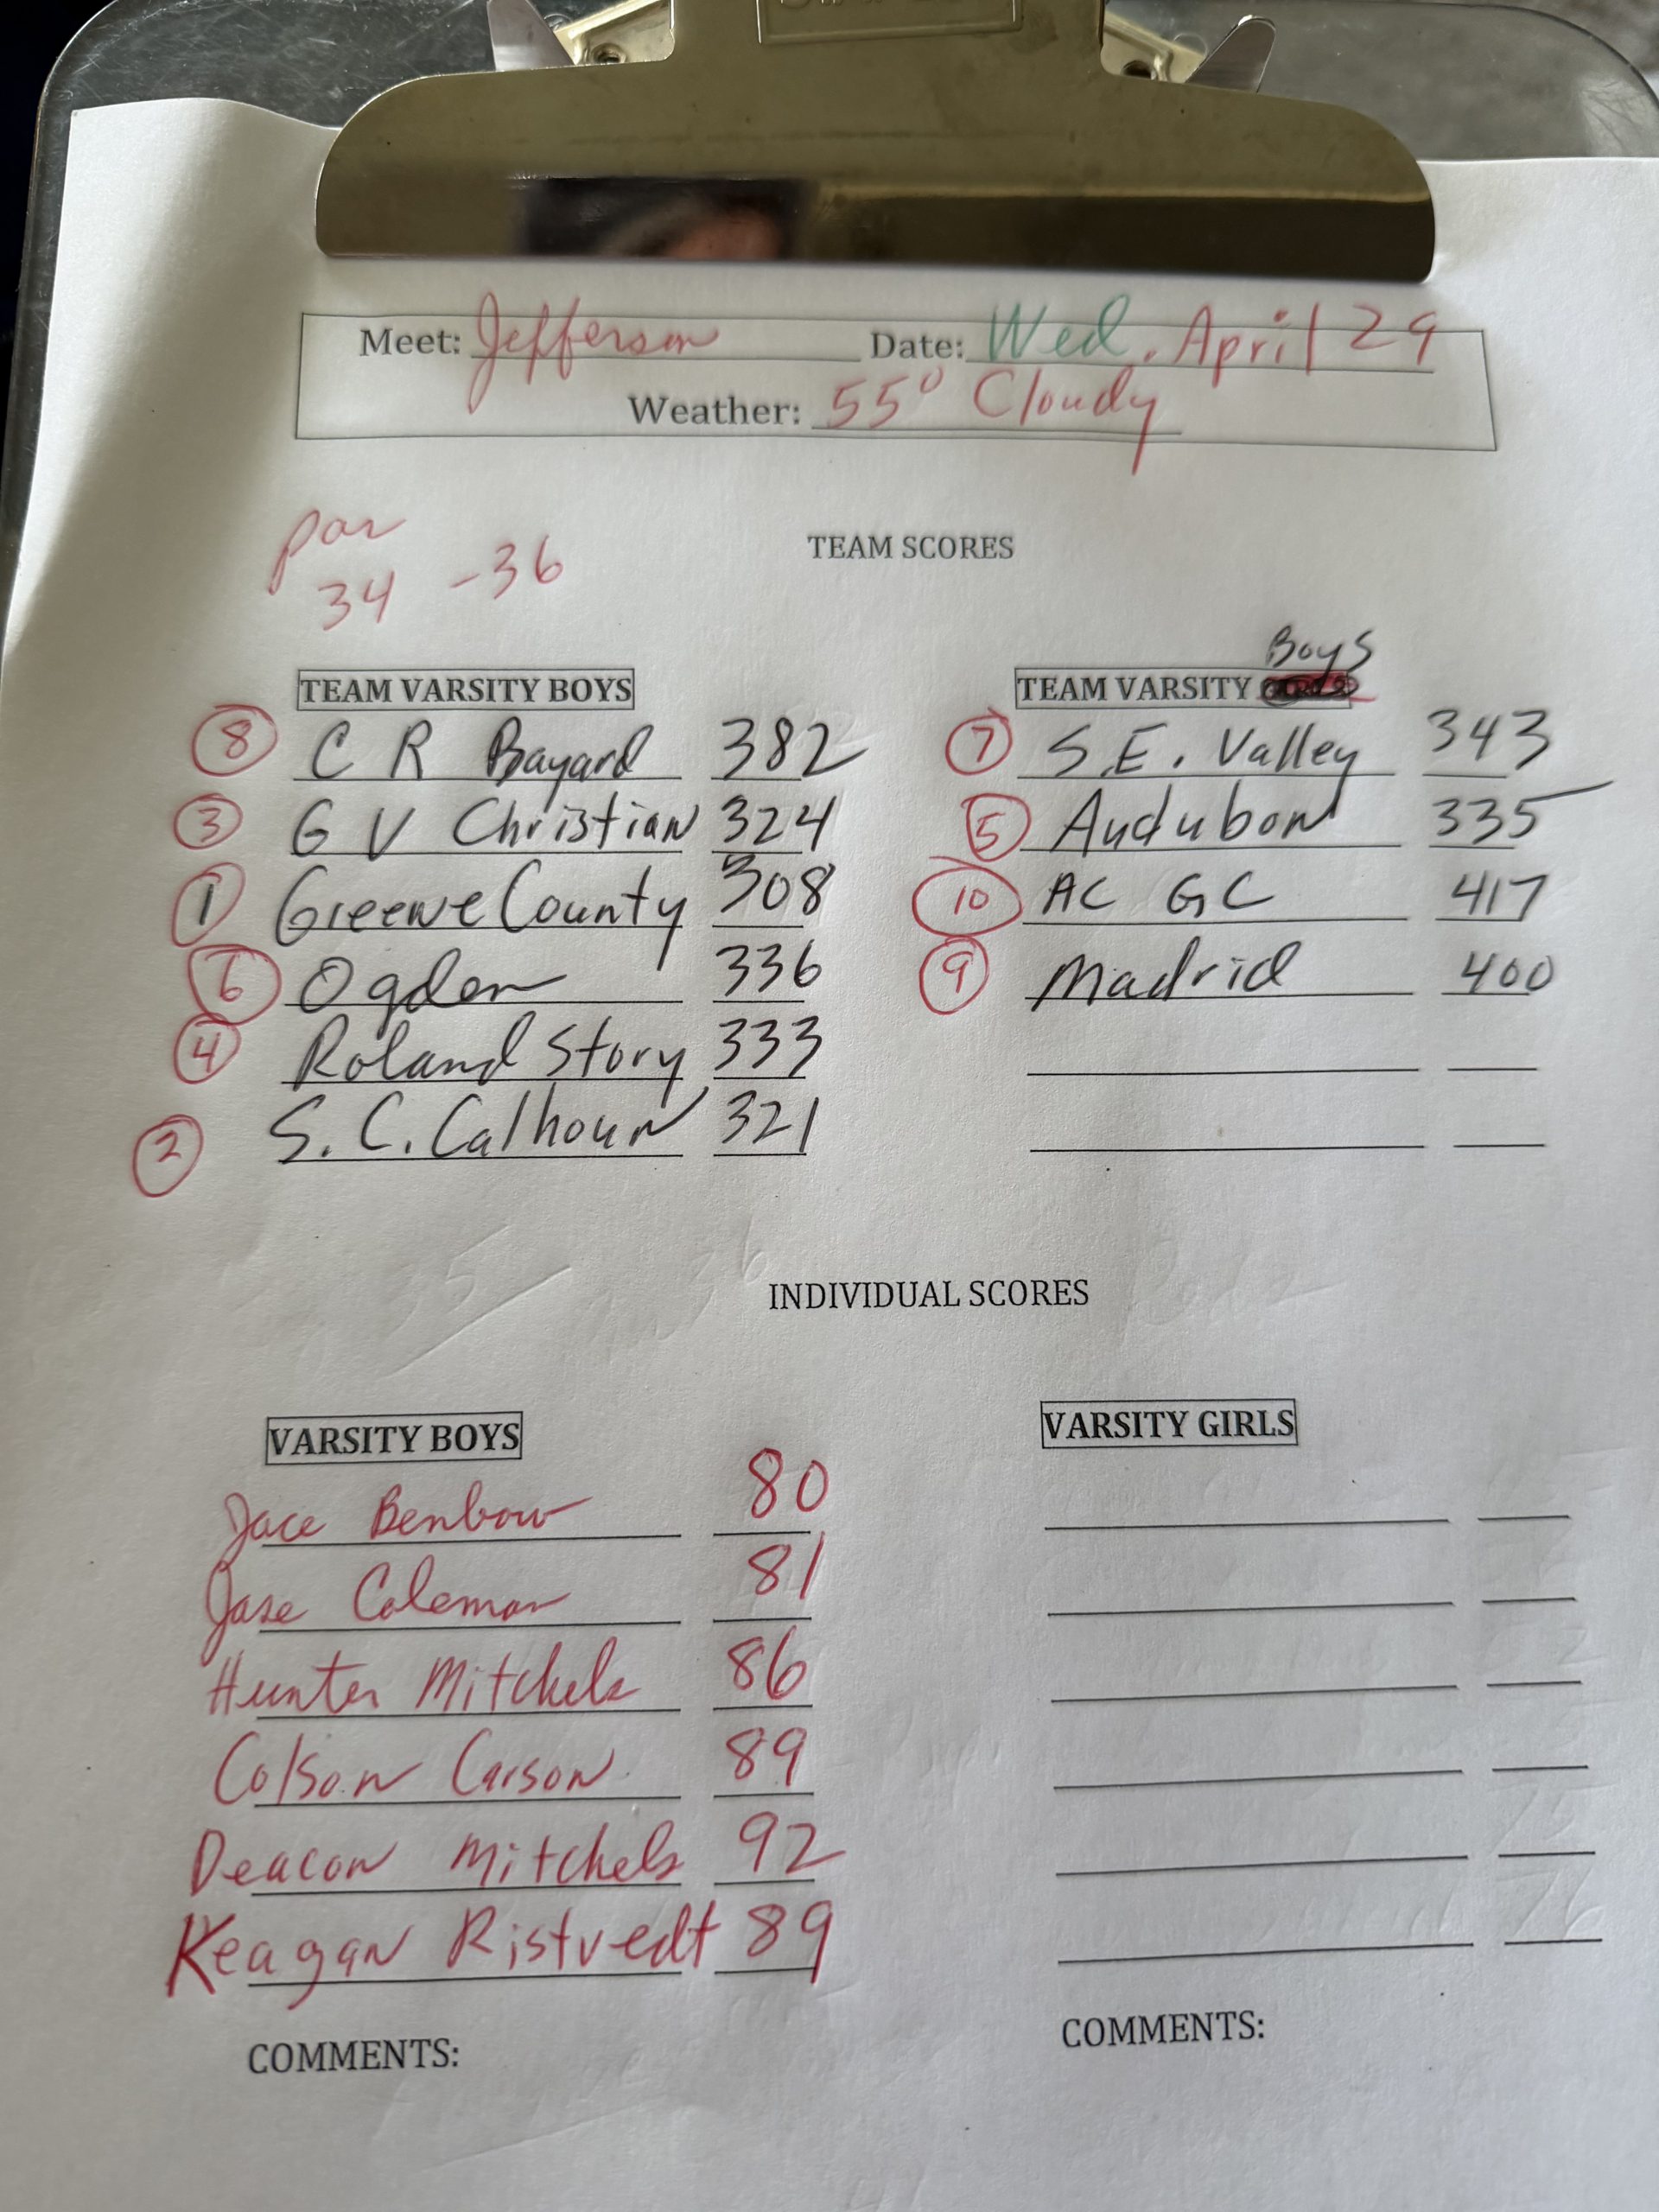 Meet: Jefferson Date: Wed. April 29
Weather: 55° Cloudy
par
34 - 36
TEAM SCORES
TEAM VARSITY BOYS
8 C R Bayard 382
3 G V Christian 324
1 Greene County 308
6 Ogden 336
4 Roland Story 333
2 S. C. Calhoun 321
Boys
TEAM VARSITY
7 S.E. Valley 343
5 Audubon 335
10 AC GC 417
9 Madrid 400
INDIVIDUAL SCORES
VARSITY BOYS
Jace Benbow 80
Jase Coleman 81
Hunter Mitchels 86
Colson Carson 89
Deacon Mitchels 92
Keagan Ristvedt 89
COMMENTS:
VARSITY GIRLS
COMMENTS: